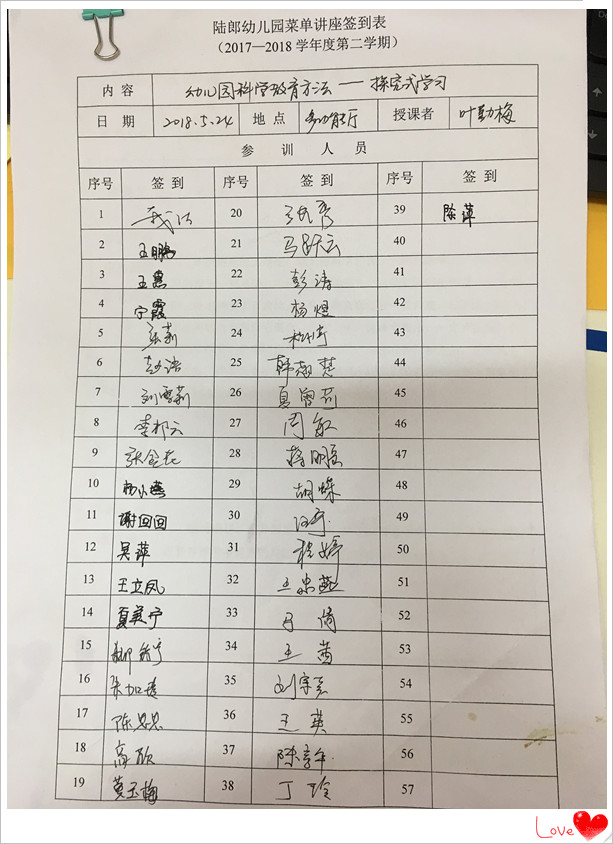 陆郎幼儿园菜单讲座签到表
(2017—2018 学年度第二学期)
内 容 幼儿园科学教育方法 — 探究式学习
日 期 2018.5.24 地 点 多功能厅 授课者 叶勤梅
参 训 人 员
序号 签 到 序号 签 到 序号 签 到
1 20 39 陈萍
2 王鹏 21 马跃云 40
3 王惠 22 彭涛 41
4 宁霞 23 杨煜 42
5 张莉 24 43
6 25 韩海慧 44
7 刘雪莉 26 夏曾莉 45
8 李邦云 27 周敏 46
9 张金花 28 蒋明霞 47
10 杨小燕 29 胡蝶 48
11 谢回回 30 49
12 吴萍 31 程婷 50
13 王立凤 32 王忠燕 51
14 夏美宁 33 马倩 52
15 34 王茜 53
16 35 刘宇 54
17 陈思思 36 王英 55
18 高欣 37 陈青年 56
19 黄玉梅 38 丁玲 57
Love